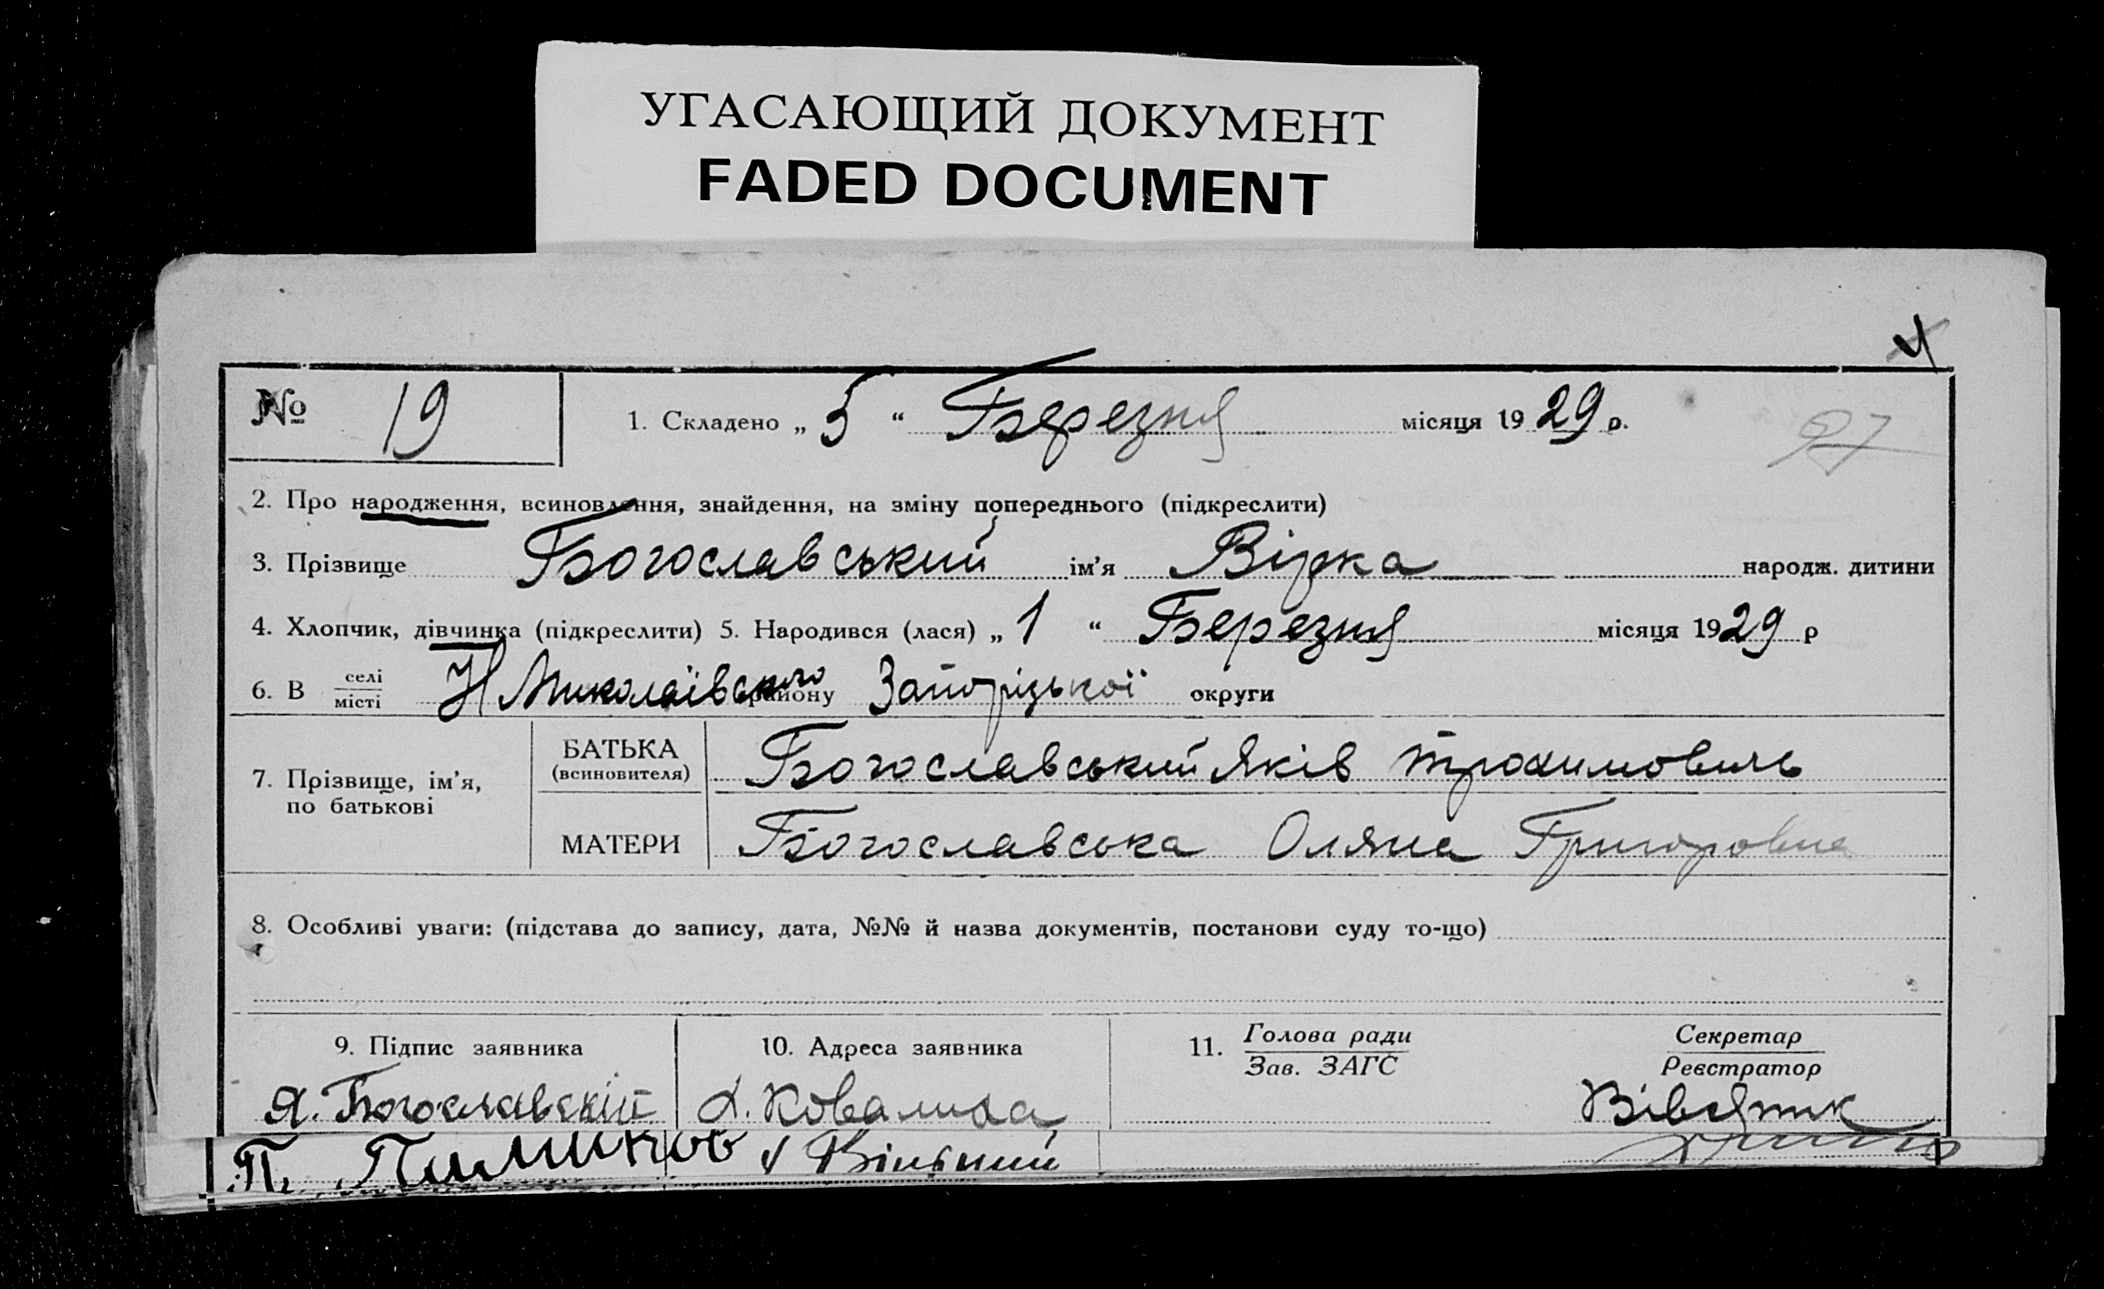 УГАСАЮЩИЙ ДОКУМЕНТ
FADED DOCUMENT
4
№ 19 1. Складено „ 5 “ Березня місяця 1929 р.
97
2. Про народження, всиновлення, знайдення, на зміну попереднього (підкреслити)
3. Прізвище Богославський ім’я Вірка народж. дитини
4. Хлопчик, дівчинка (підкреслити) 5. Народився (лася) „ 1 “ Березня місяця 1929 р
6. В селі місті Н Миколаївского району Запоріцької округи
7. Прізвище, ім’я, по батькові
БАТЬКА (всиновителя) Богославський Яків Трохимовичь
МАТЕРИ Богославська Оляна Григоровна
8. Особливі уваги: (підстава до запису, дата, №№ й назва документів, постанови суду то-що)
9. Підпис заявника 10. Адреса заявника 11. Голова ради Зав. ЗАГС Секретар Реєстратор
Я. Богославскій
П. х Вільний